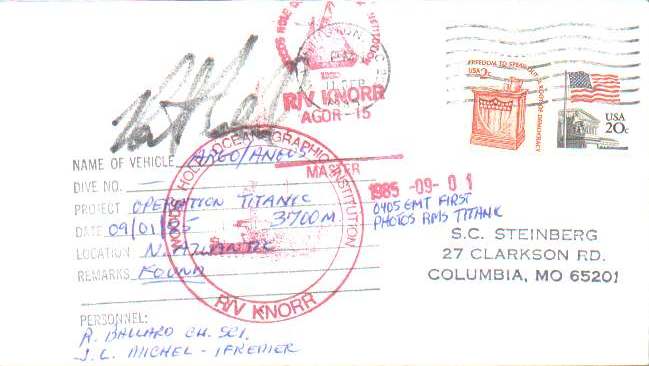 WOODS HOLE OCEANOGRAPHIC INSTITUTION
R/V KNORR
AGOR-15
MASTER
FREEDOM TO SPEAK OUT A ROOT OF DEMOCRACY
USA 2c
USA
20c
NAME OF VEHICLE ARGO/ANGUS
DIVE NO. —
PROJECT OPERATION TITANIC
DATE 09/01/85 3700M.
LOCATION N. ATLANTIC
REMARKS FOUND
WOODS HOLE OCEANOGRAPHIC INSTITUTION
R/V KNORR
1985-09-01
0405 GMT FIRST
PHOTOS RMS TITANIC
S.C. STEINBERG
27 CLARKSON RD.
COLUMBIA, MO 65201
PERSONNEL:
R. BALLARD CH. SCI.
J. L. MICHEL - IFREMER